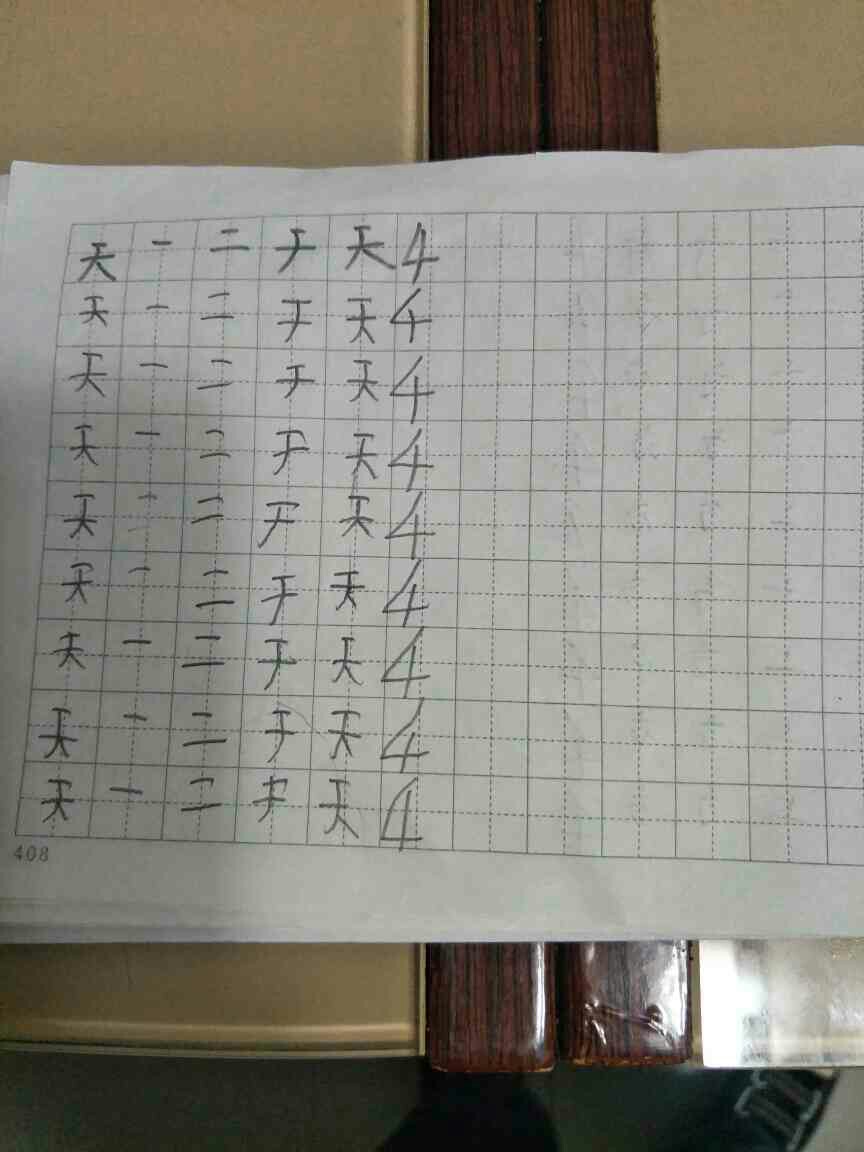 天 一 二 于 天 4
天 一 二 于 天 4
天 一 二 于 天 4
天 一 二 于 天 4
天 一 二 于 天 4
天 一 二 于 天 4
天 一 二 于 天 4
天 一 二 于 天 4
天 一 二 于 天 4
408